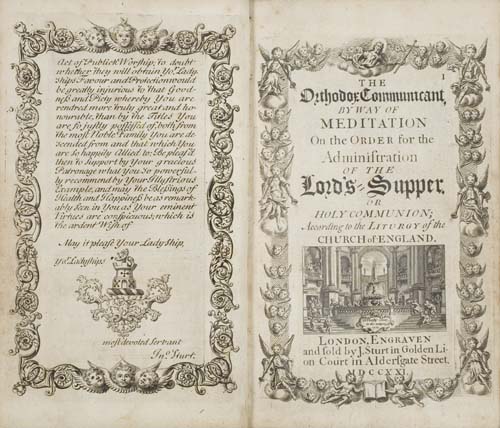 Act of Publick Worship; to doubt
whether they will obtain Yor. Lady
Ships Favour and Protection would
be greatly injurious to that Good-
ness and Piety whereby You are
rendred more truly great and ho-
nourable, than by the Titles You
are so justly possessed of, both from
the most Noble Family You are de
scended from and that which You
are so happily Allied to; Be pleas'd
then to Support by Your gracious
Patronage what You so powerful-
ly recommend by Your Illustrious
Example, and may the Blessings of
Health and Happiness be as remark-
ably Seen in You as Your eminent
Virtues are conspicuous; which is
the ardent Wish of
May it please Your LadyShip,
Yor. Ladyships
most devoted Servant
Jno. Sturt.
1
THE
Orthodox Communicant,
BY WAY OF
MEDITATION
On the ORDER for the
Administration
OF THE
Lord's-Supper,
OR
HOLY COMMUNION;
According to the LITURGY of the
CHURCH of ENGLAND.
LONDON, ENGRAVEN
and sold by J. Sturt in Golden Li-
on Court in Aldersgate Street.
MDCCXXI.